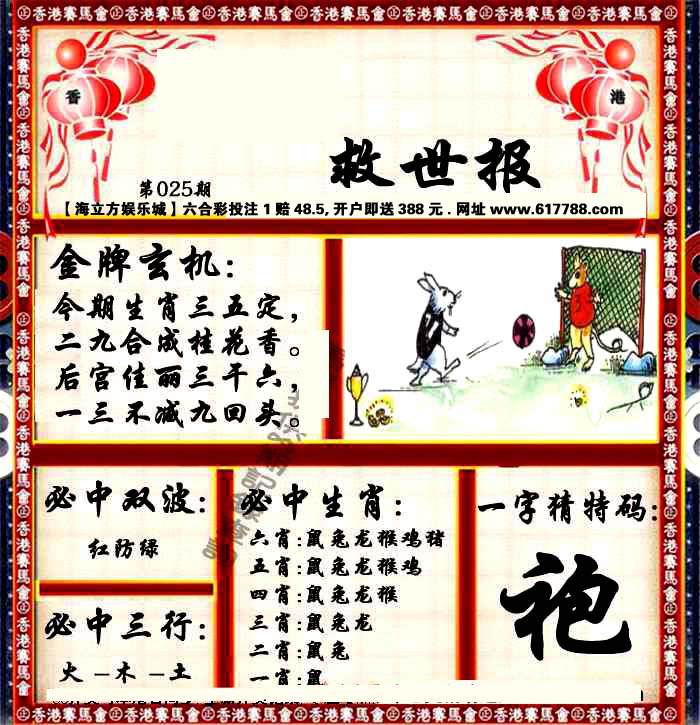 香港賽馬會
香 港
救世报
第025期
【海立方娱乐城】六合彩投注1赔48.5,开户即送388元.网址www.617788.com
金牌玄机:
今期生肖三五定,
二九合成桂花香。
后宫佳丽三千六,
一三不减九回头。
必中双波:
红防绿
必中三行:
火-木-土
必中生肖:
六肖:鼠兔龙猴鸡猪
五肖:鼠兔龙猴鸡
四肖:鼠兔龙猴
三肖:鼠兔龙
二肖:鼠兔
一肖:鼠
一字猜特码:
袍